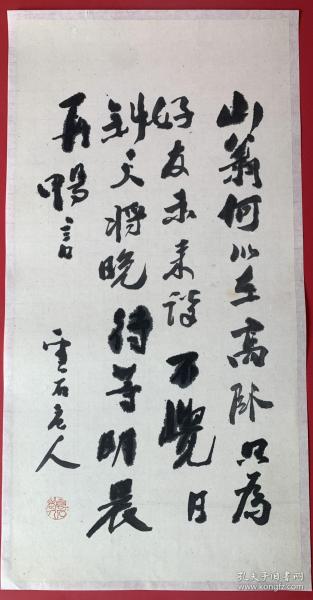 山翁何以在高卧只為
好友未来談不覺日
斜天将晚待等明晨
再暢言
雲石老人
孔夫子旧书网